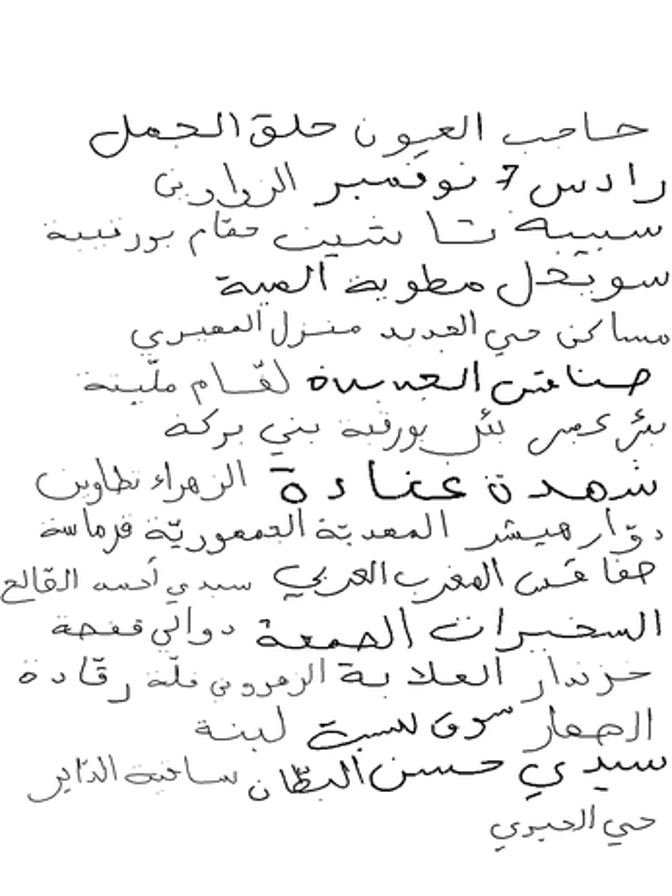 حاجب العيون حلق الجمل
رادس 7 نوفمبر الزواوين
سبيبة تا شيت حقام بورقيبة
سويحل مطوية المية
مساكن حي الجديد منزل المعيري
صنا قش الجديدة لقام مليتة
بئر عجس نئل بورقبة بني بركة
شهدة عناءة الزهراء تطاوين
دوار هيشر المعدية الجمهورية فرماسة
صفاقس المغرب العربي سيدي أحمد القالح
السخيرات الجمعة دوالي قفصة
خزندار العلاية الزهروني فلة رقادة
الصمار سوق لسبت لبنة
سيدي حسن البطان ساقية الداير
حي الحبري